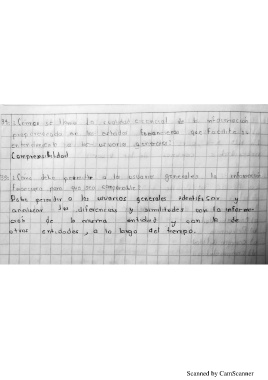 29. ¿Como se llama la cualidad esencial de la información
proporcionada en los estados financieros que facilita su
entendimiento a los usuarios generales?
Comprensibilidad
30. ¿Como debe permitir a los usuarios generales la información
financiera para que sea comparable?
Debe permitir a los usuarios generales identificar y
analizar las diferencias y similitudes con la informa-
ción de la misma entidad y con la de
otras entidades, a lo largo del tiempo.
Scanned by CamScanner